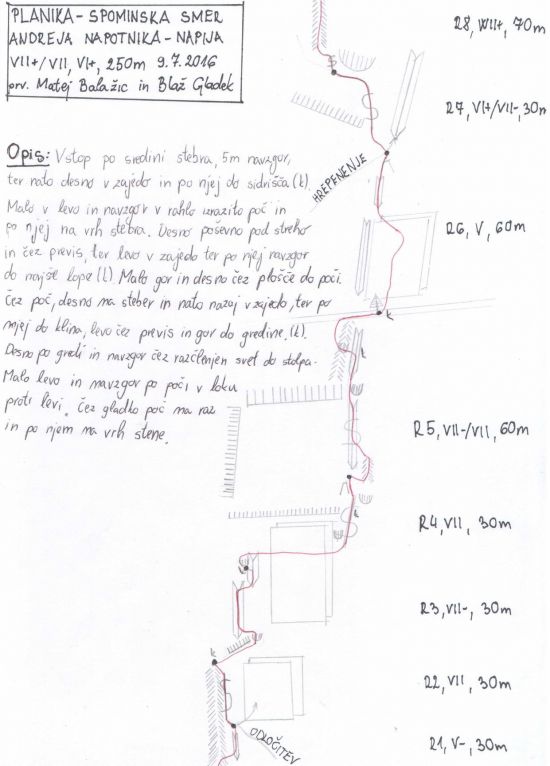 PLANIKA - SPOMINSKA SMER
ANDREJA NAPOTNIKA - NAPIJA
VII+/VII, VI+, 250m 9.7.2016
prv. Matej Balažic in Blaž Gladek
Opis: Vstop po sredini stebra, 5m navzgor,
ter nato desno v zajedo in po njej do sidrišča (k)
Malo v levo in navzgor v rahlo izrazito poč in
po njej na vrh stebra. Desno poševno pod streho
in čez previs, ter levo v zajedo ter po njej navzgor
do navše lope (k). Malo gor in desno čez plošče do poči.
Čez poč, desno na steber in nato nazaj v zajedo, ter po
njej do klina, levo čez previs in gor do gredine. (k).
Desno po gredi in navzgor čez razčlenjen svet do stolpa.
Malo levo in navzgor po poči v loku
proti levi. Čez gladko poč na raz
in po njem na vrh stene.
R8, VIII+, 70m
R7, VI+/VII-, 30m
HREPENENJE
R6, V, 60m
k
k
R5, VII-/VII, 60m
k
R4, VII, 30m
R3, VII-, 30m
k
R2, VII, 30m
ODLOČITEV
R1, V-, 30m